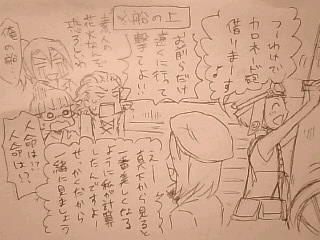 つーわけで
カロネード砲
借ります
※船の上
お前らだけ
遠くに行って
撃てよ!!
素人の
花火なんて
恐ろしいわ
俺の船
人命は!?
人命は!?
えー
真下から見ると
一番美しくなる
ように私が計算
したんですよー
せっかくだから
一緒に見ましょう